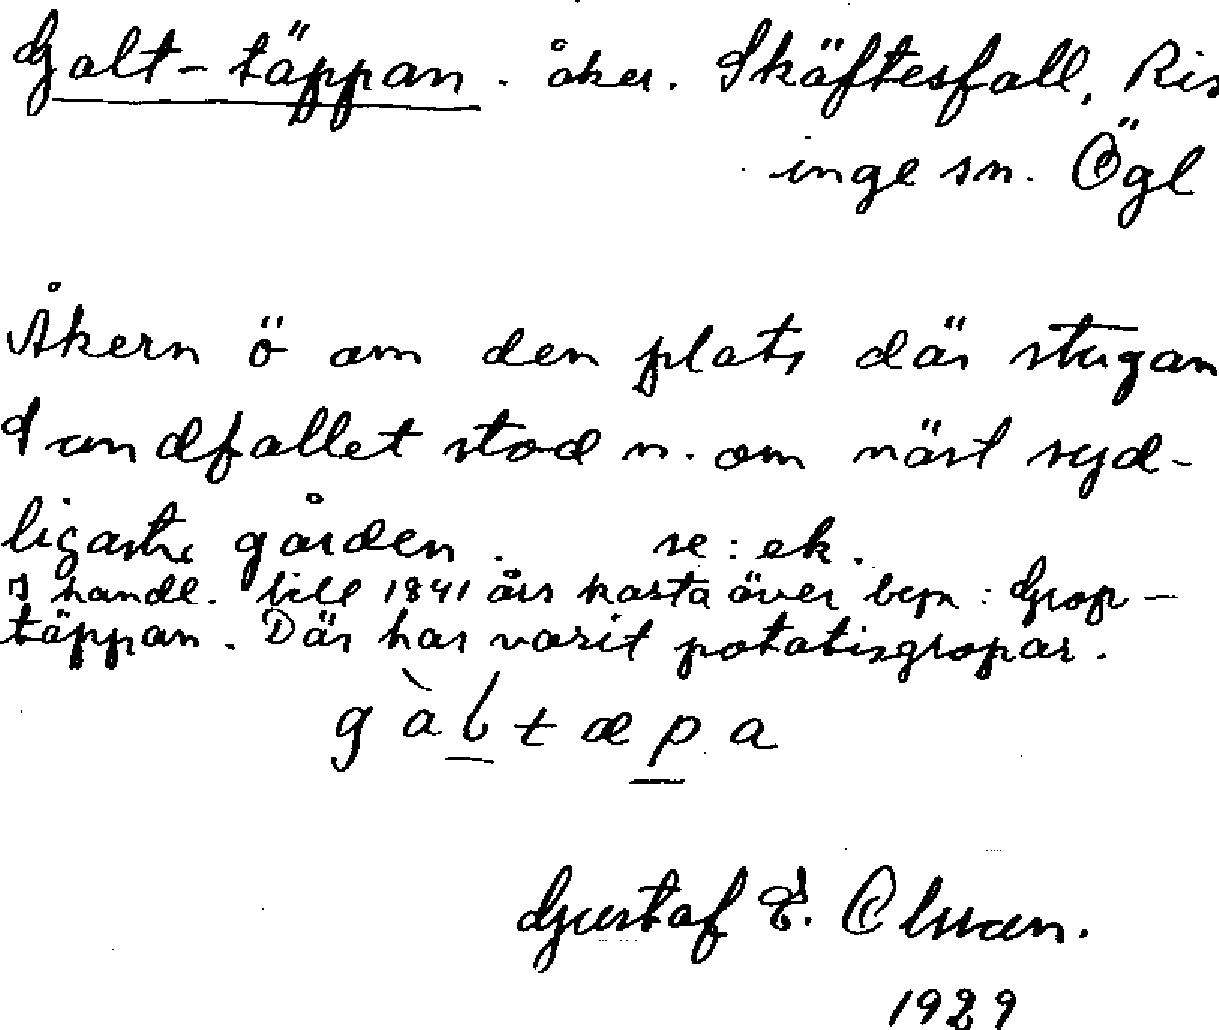 Galt-täppan. åker. Skäftesfall, Ris
inge sn. Ögl
Åkern ö om den plats där stugan
Sandfallet stod n. om näst syd-
ligaste gården. se: ek.
I handl. till 1841 års karta över ben: Grop-
täppan. Där har varit potatisgropar.
gàltæpa
Gustaf E. Olsson.
1929